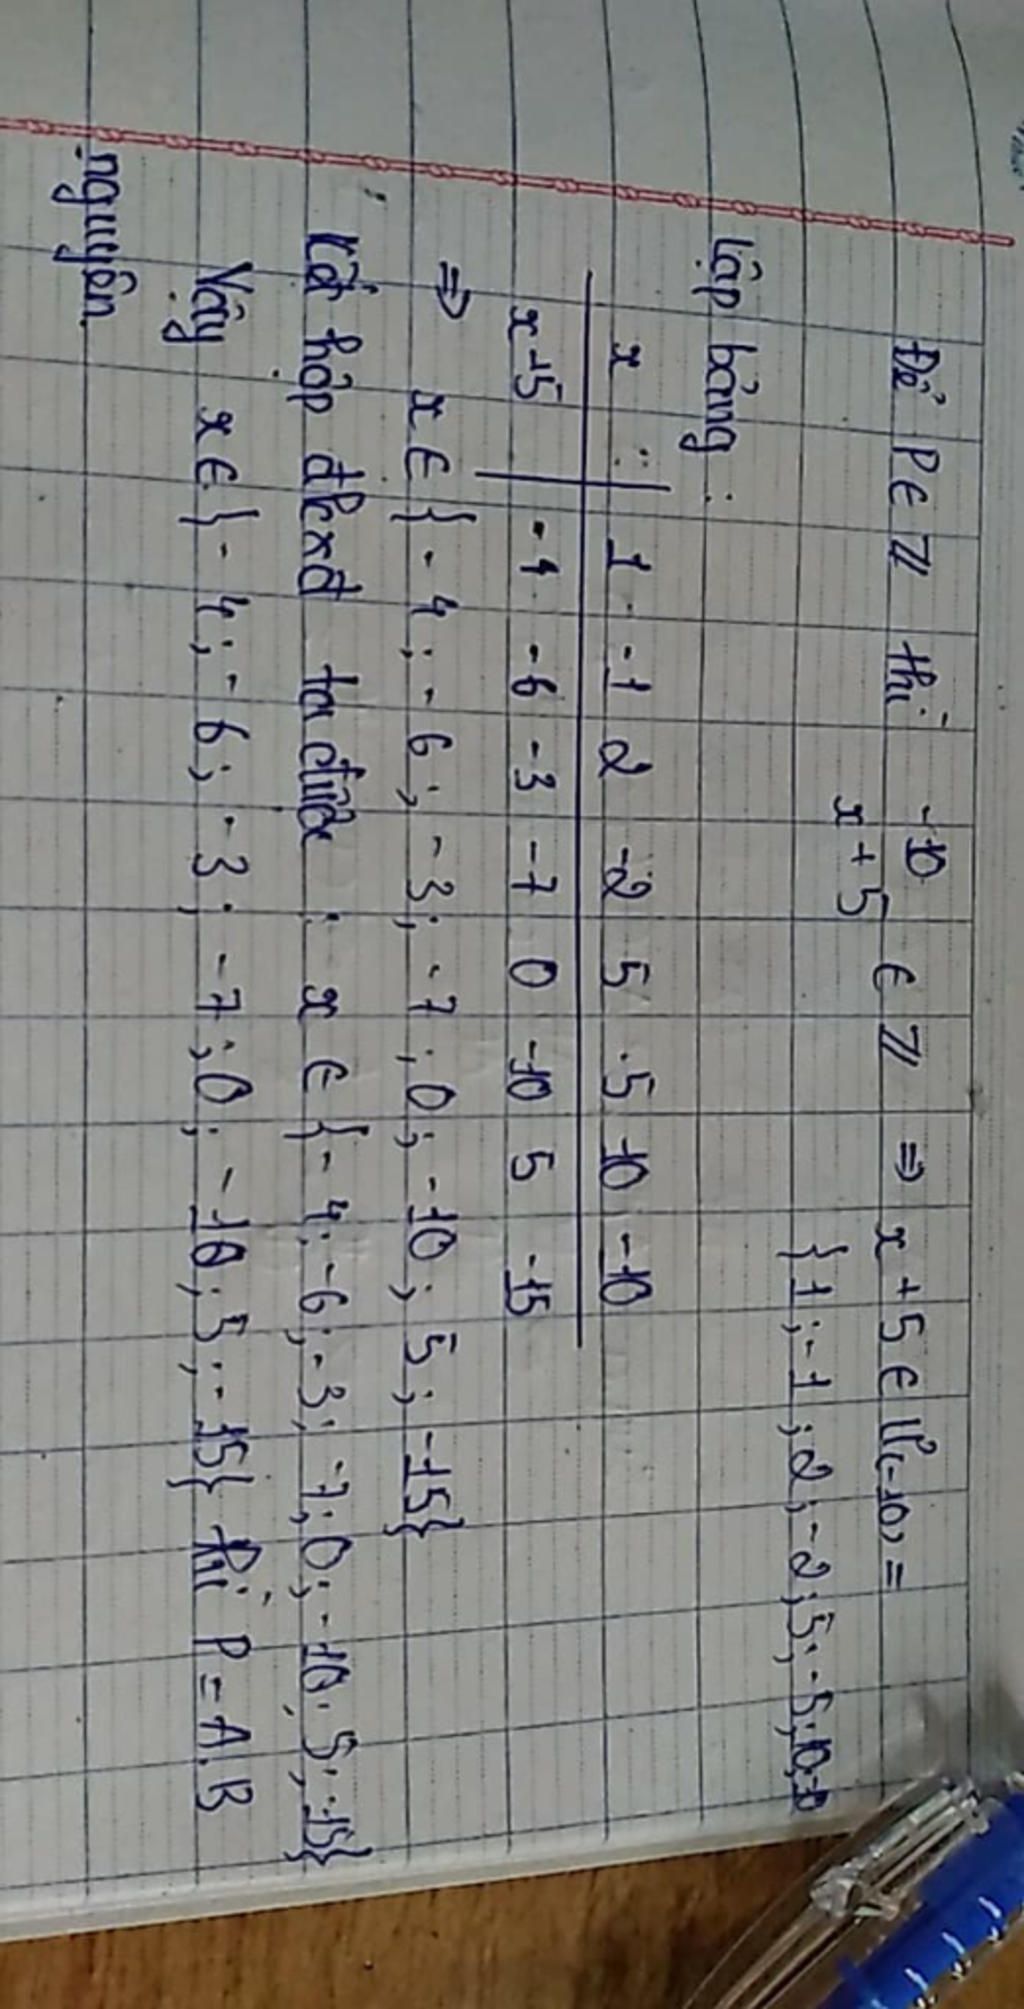 Để P ∈ Z thì -10/x+5 ∈ Z ⇒ x+5 ∈ Ư(-10) =
{1;-1;2;-2;5;-5;10;-10
Lập bảng:
x 1 -1 2 -2 5 -5 10 -10
x+5 -4 -6 -3 -7 0 -10 5 -15
⇒ x ∈ {-4;-6;-3;-7;0;-10;5;-15}
Kết hợp đkxđ ta được: x ∈ {-4;-6;-3;-7;0;-10;5;-15}
Vậy x ∈ {-4;-6;-3;-7;0;-10;5;-15} thì P = A.B
nguyên.